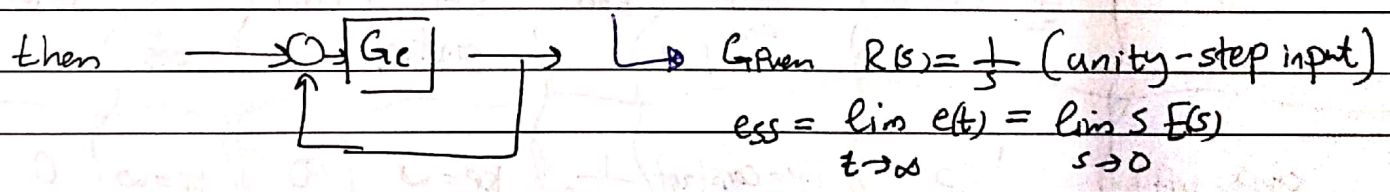 then Ge ↳ Given R(s) = 1/s (unity-step input)
ess = lim e(t) = lim s E(s)
t→∞ s→0